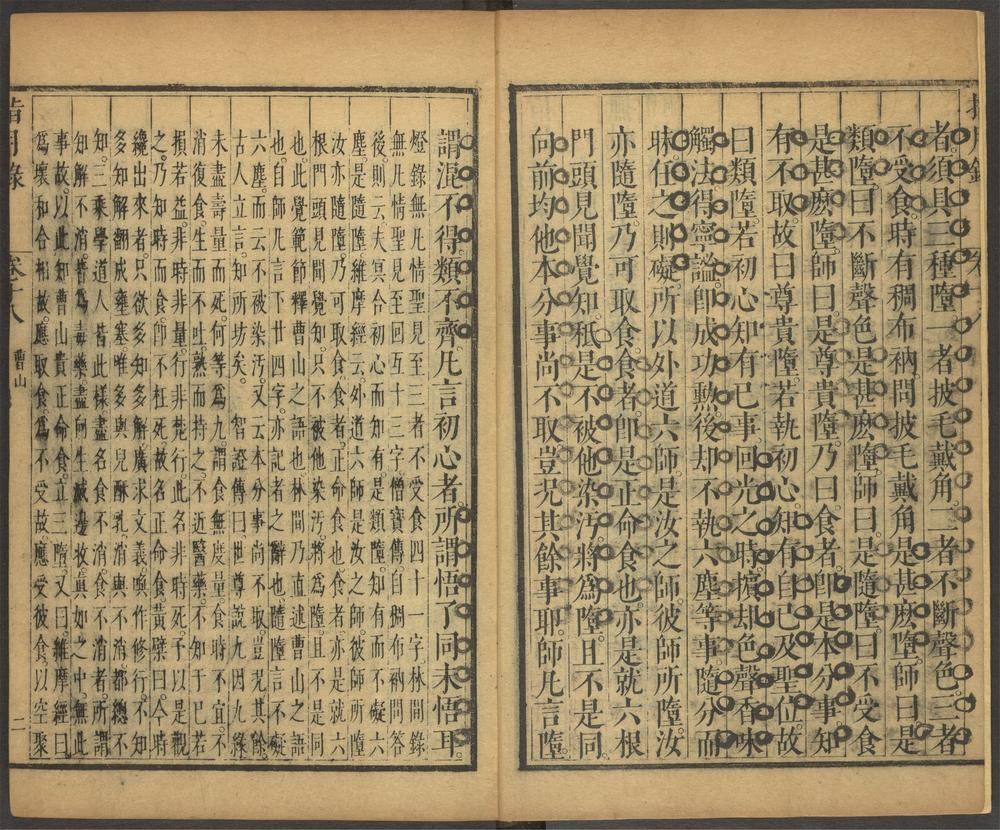 者須具三種墮一者披毛戴角二者不斷聲色三者
不受食時有稠布衲問披毛戴角是甚麽墮師曰是
類墮曰不斷聲色是甚麽墮師曰是隨墮曰不受食
是甚麽墮師曰是尊貴墮乃曰食者卽是本分事知
有不取故曰尊貴墮若執初心知有自己及聖位故
曰類墮若初心知有已事回光之時擯却色聲香味
觸法得寧謐卽成功勲後却不執六塵等事隨分而
昧任之則礙所以外道六師是汝之師彼師所墮汝
亦隨墮乃可取食食者卽是正命食也亦是就六根
門頭見聞覺知秖是不被他染汚將爲墮且不是同
向前均他本分事尚不取豈况其餘事耶師凡言墮
謂混不得類不齊凡言初心者所謂悟了同未悟耳
燈錄無凡情聖見至三者不受食四十一字林間錄
無凡情聖見至回互十三字僧寶傳自稠布衲問答
後則云夫冥合初心而知有是類墮知有而不礙六
塵是隨墮維摩經云外道六師是汝之師彼師所墮
汝亦隨墮乃可取食食者正命食也食者亦是就六
根門頭見聞覺知只不被他染汚將爲墮且不是同
也此覺範節釋曹山之語也林間乃直述曹山之語
也自師凡言下廿四字亦記者之辭也隨墮言不礙
六塵而云不被染汚又云本分事尚不取豈况其餘
古人立言知所坊矣　智證傳曰世尊說九因九緣
未盡壽量而死何等爲九謂食無度量食時不宜不
消復食生而不吐熟而持之不近醫藥不知于己若
損若益非時非量行非梵行此名非時死予以是觀
之乃知時而食師不枉死故名正命食黃檗曰今時
纔出來者只欲多知多解廣求文義喚作修行不知
多知解翻成壅塞唯多與兒酥乳消與不消都總不
知三乘學道人皆此樣盡名食不消食不消者所謂
知解不消皆爲毒藥盡向生滅邊收眞如之中無此
事故以此知曹山貴正命食立三墮又曰維摩經曰
爲壞和合相故應取食爲不受故應受彼食以空聚
指月錄
卷十八
曹山
二